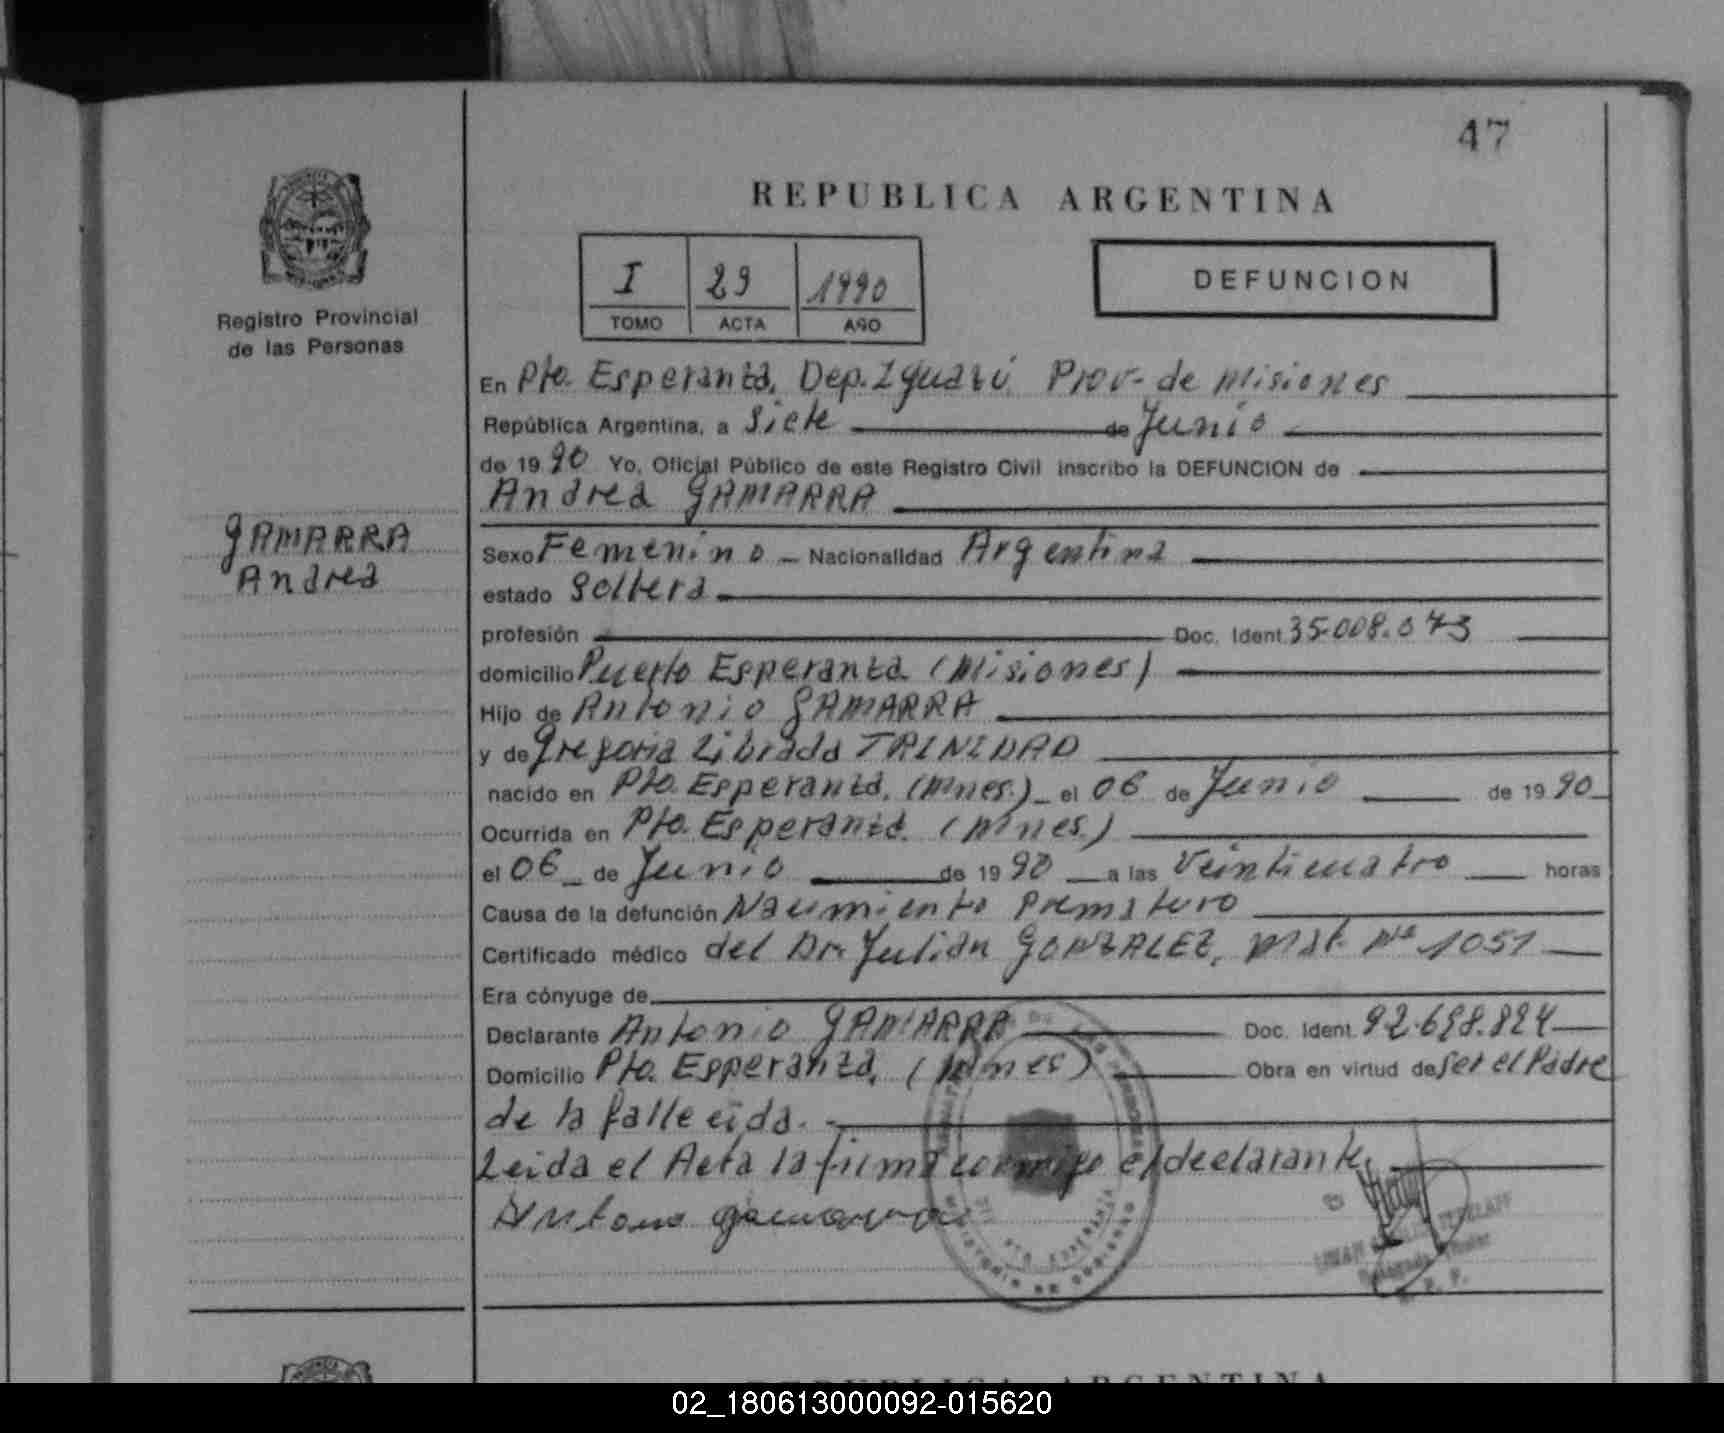 47
REPUBLICA ARGENTINA
I 29 1990
TOMO ACTA AÑO
DEFUNCION
Registro Provincial
de las Personas
GAMARRA
Andrea
En Pto. Esperanza, Dep. Iguazú, Prov. de Misiones
República Argentina, a Siete de Junio
de 1990 Yo, Oficial Público de este Registro Civil inscribo la DEFUNCION de
Andrea GAMARRA
Sexo Femenino - Nacionalidad Argentina
estado Soltera
profesión Doc. Ident. 35.008.073
domicilio Puerto Esperanza (Misiones)
Hijo de Antonio GAMARRA
y de Gregoria Librada TRINIDAD
nacido en Pto. Esperanza, (Mnes.) el 06 de Junio de 1990
Ocurrida en Pto. Esperanza, (Mnes.)
el 06 de Junio de 1990 a las Veinticuatro horas
Causa de la defunción Nacimiento Prematuro
Certificado médico del Dr. Julian GONZALEZ, Mat. Nº 1051
Era cónyuge de
Declarante Antonio GAMARRA Doc. Ident. 92.698.824
Domicilio Pto. Esperanza, (Mnes) Obra en virtud de ser el Padre
de la fallecida.
Leida el Acta la firma conmigo el declarante.
Antonio gamarra
PTO. ESPERANZA
MINISTERIO DE GOBIERNO
REPUBLICA ARGENTINA
02_180613000092-015620